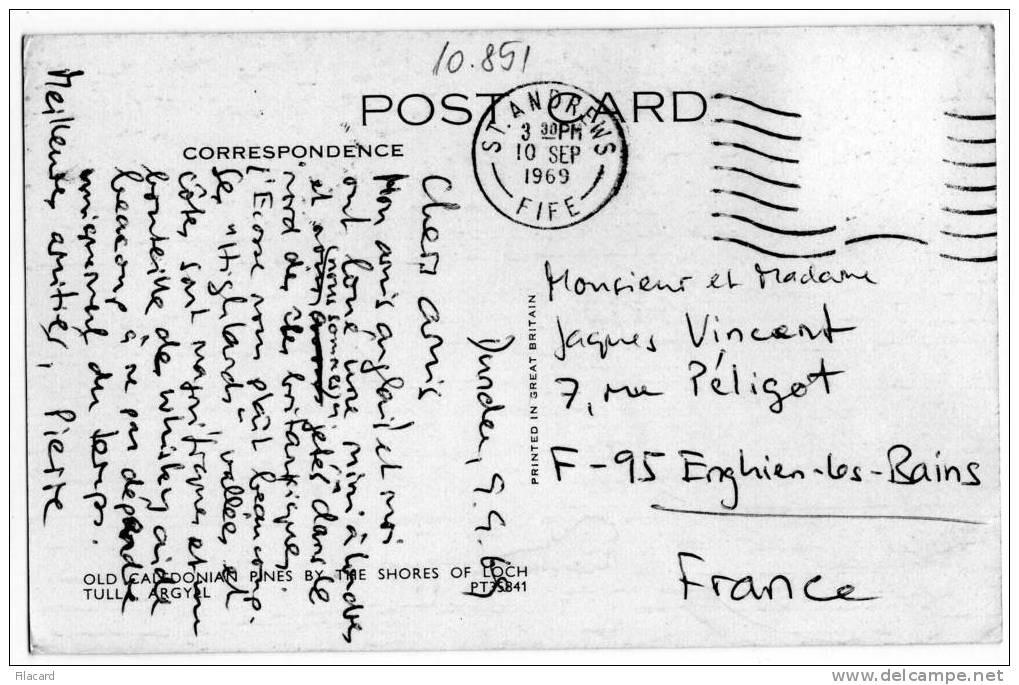 10.851
POST CARD
CORRESPONDENCE
ST. ANDREWS
3 30PM
10 SEP
1969
FIFE
Dundee, 9.9.69
Chers amis
Mon ami anglais et moi
ont loué une mini à Londres,
et nous sommes jetés dans le
nord des îles britanniques.
L'Ecosse nous plaît beaucoup.
Ses "Highlands", vallées, et
côtes sont magnifiques et une
bouteille de whisky aide
beaucoup à ne pas dépendre
uniquement du temps.
Meilleures amitiés, Pierre
PRINTED IN GREAT BRITAIN
Monsieur et Madame
Jaques Vincent
7, rue Péligot
F-95 Enghien-les-Bains
France
OLD CALEDONIAN PINES BY THE SHORES OF LOCH
TULLA ARGYLL PT35841
Filacard
www.delcampe.net